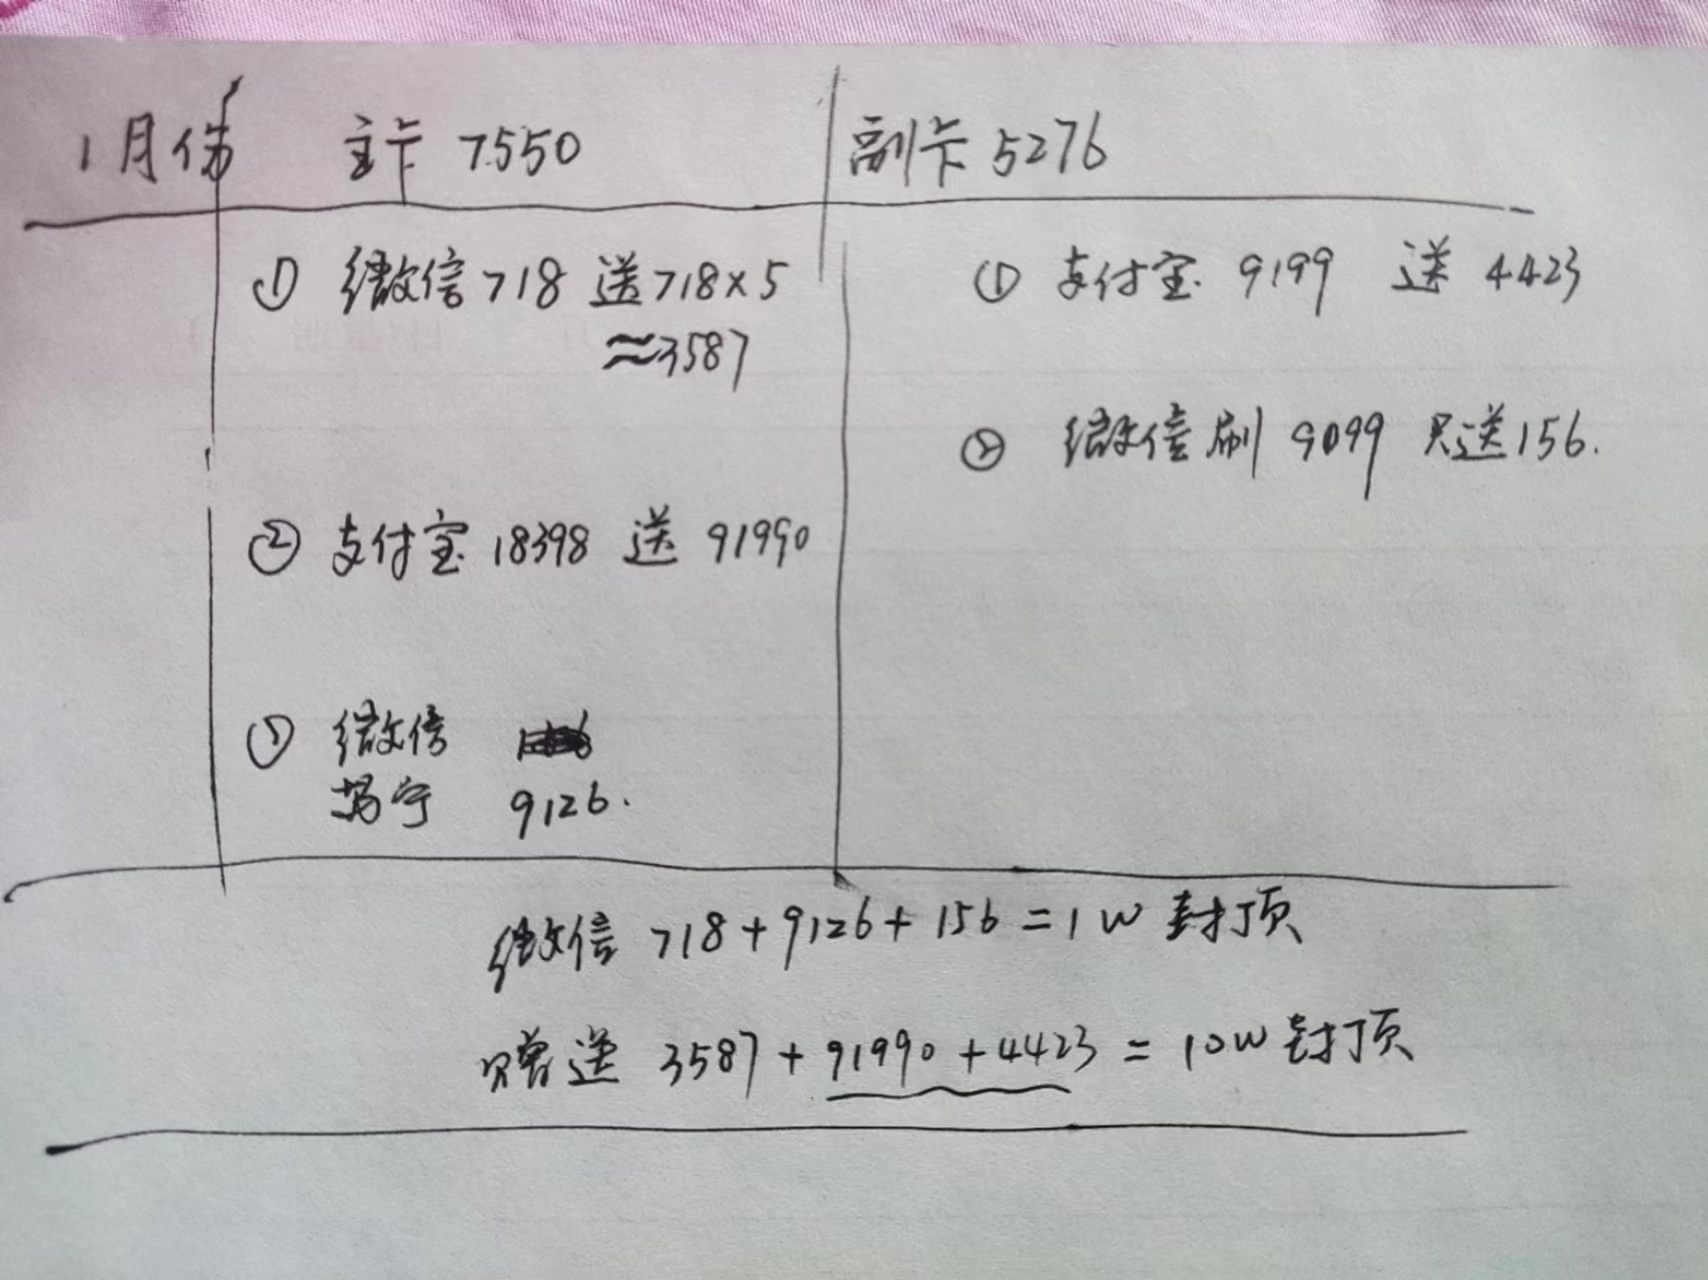 1月份 主卡 7550 副卡 5276
① 微信 718 送 718×5
≈3587
② 支付宝 18398 送 91990
③ 微信
9126.
① 支付宝 9199 送 4423
② 微信刷 9099 只送 156.
微信 718+9126+156=1W 封顶
赠送 3587+91990+4423=10W 封顶